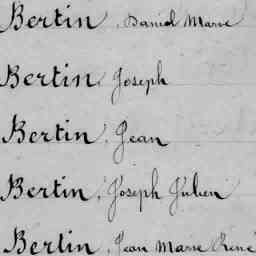 Bertin, Daniel Marie
Bertin, Joseph
Bertin, Jean
Bertin, Joseph Julien
Bertin, Jean Marie René